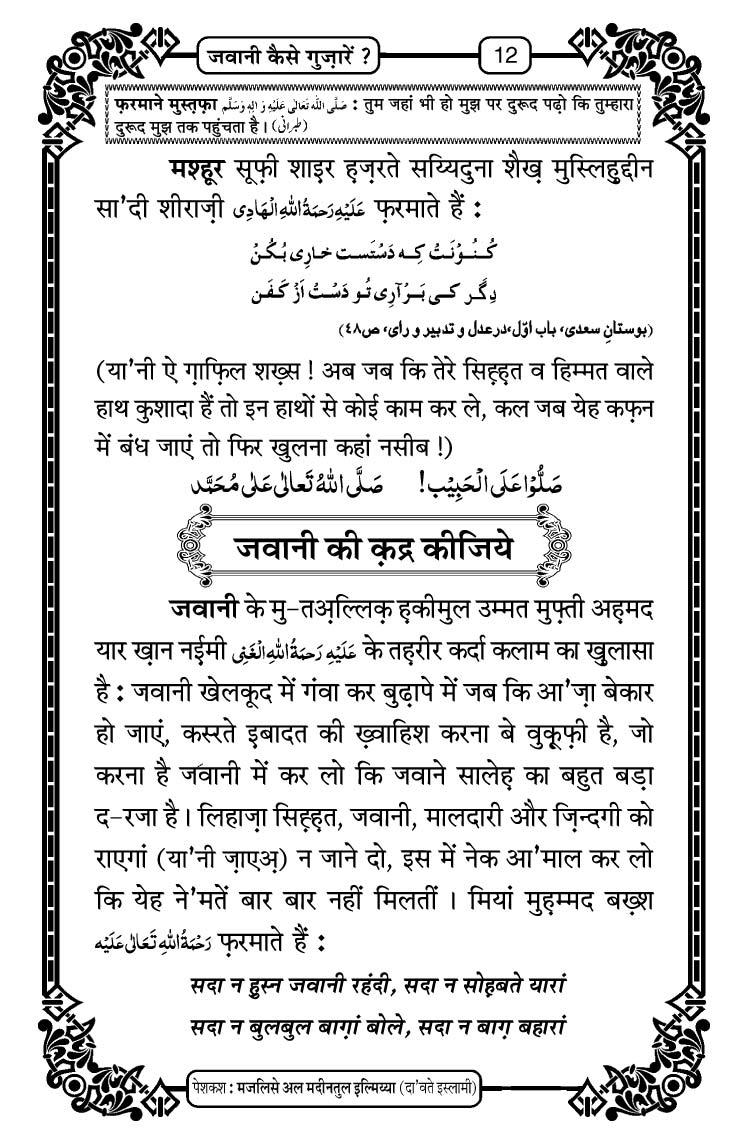 जवानी कैसे गुज़ारें ?
12
फ़रमाने मुस्त़फ़ा صَلَّى اللهُ تَعَالٰى عَلَيْهِ وَاٰلِهٖ وَسَلَّم : तुम जहां भी हो मुझ पर दुरूद पढ़ो कि तुम्हारा
दुरूद मुझ तक पहुंचता है। (طبرانی)
मश्हूर सूफ़ी शाइ़र ह़ज़रते सय्यिदुना शैख़ मुस्लिहु़द्दीन
सा'दी शीराज़ी عَلَيْهِ رَحمَةُ اللهِ الْهَادِى फ़रमाते हैं :
كُنُوْنَتْ كِه دَسْتَست خارِى بُكُنْ
دِگَر كَے بَرْآرِى تُو دَسْتْ اَزْ كَفَن
(بوستانِ سعدی، باب اوّل،درعدل و تدبیر و رای، ص۴۸)
(या'नी ऐ ग़ाफ़िल शख़्स ! अब जब कि तेरे सिह़्ह़त व हिम्मत वाले
हाथ कुशादा हैं तो इन हाथों से कोई काम कर ले, कल जब येह कफ़न
में बंध जाएं तो फिर खुलना कहां नसीब !)
صَلُّوْا عَلَى الْحَبِيْب! صَلَّى اللهُ تَعَالٰى عَلٰى مُحَمَّد
जवानी की क़द्र कीजिये
जवानी के मु-तअ़ल्लिक़ ह़कीमुल उम्मत मुफ़्ती अह़मद
यार ख़ान नई़मी عَلَيْهِ رَحمَةُ اللهِ الْغَنِى के तह़रीर कर्दा कलाम का खु़लासा
है : जवानी खेलकूद में गंवा कर बुढ़ापे में जब कि आ'ज़ा बेकार
हो जाएं, कस्रते इ़बादत की ख़्वाहिश करना बे वुक़ूफ़ी है, जो
करना है जवानी में कर लो कि जवाने सालेह़ का बहुत बड़ा
द-रजा है। लिहाज़ा सिह़्ह़त, जवानी, मालदारी और ज़िन्दगी को
राएगां (या'नी ज़ाएअ़) न जाने दो, इस में नेक आ'माल कर लो
कि येह ने'मतें बार बार नहीं मिलतीं । मियां मुह़म्मद बख़्श
رَحْمَةُ اللهِ تَعَالٰى عَلَيْه फ़रमाते हैं :
सदा न हु़स्न जवानी रहंदी, सदा न सोह़बते यारां
सदा न बुलबुल बाग़ां बोले, सदा न बाग़ बहारां
पेशकश : मजलिसे अल मदीनतुल इ़ल्मिय्या (दा'वते इस्लामी)